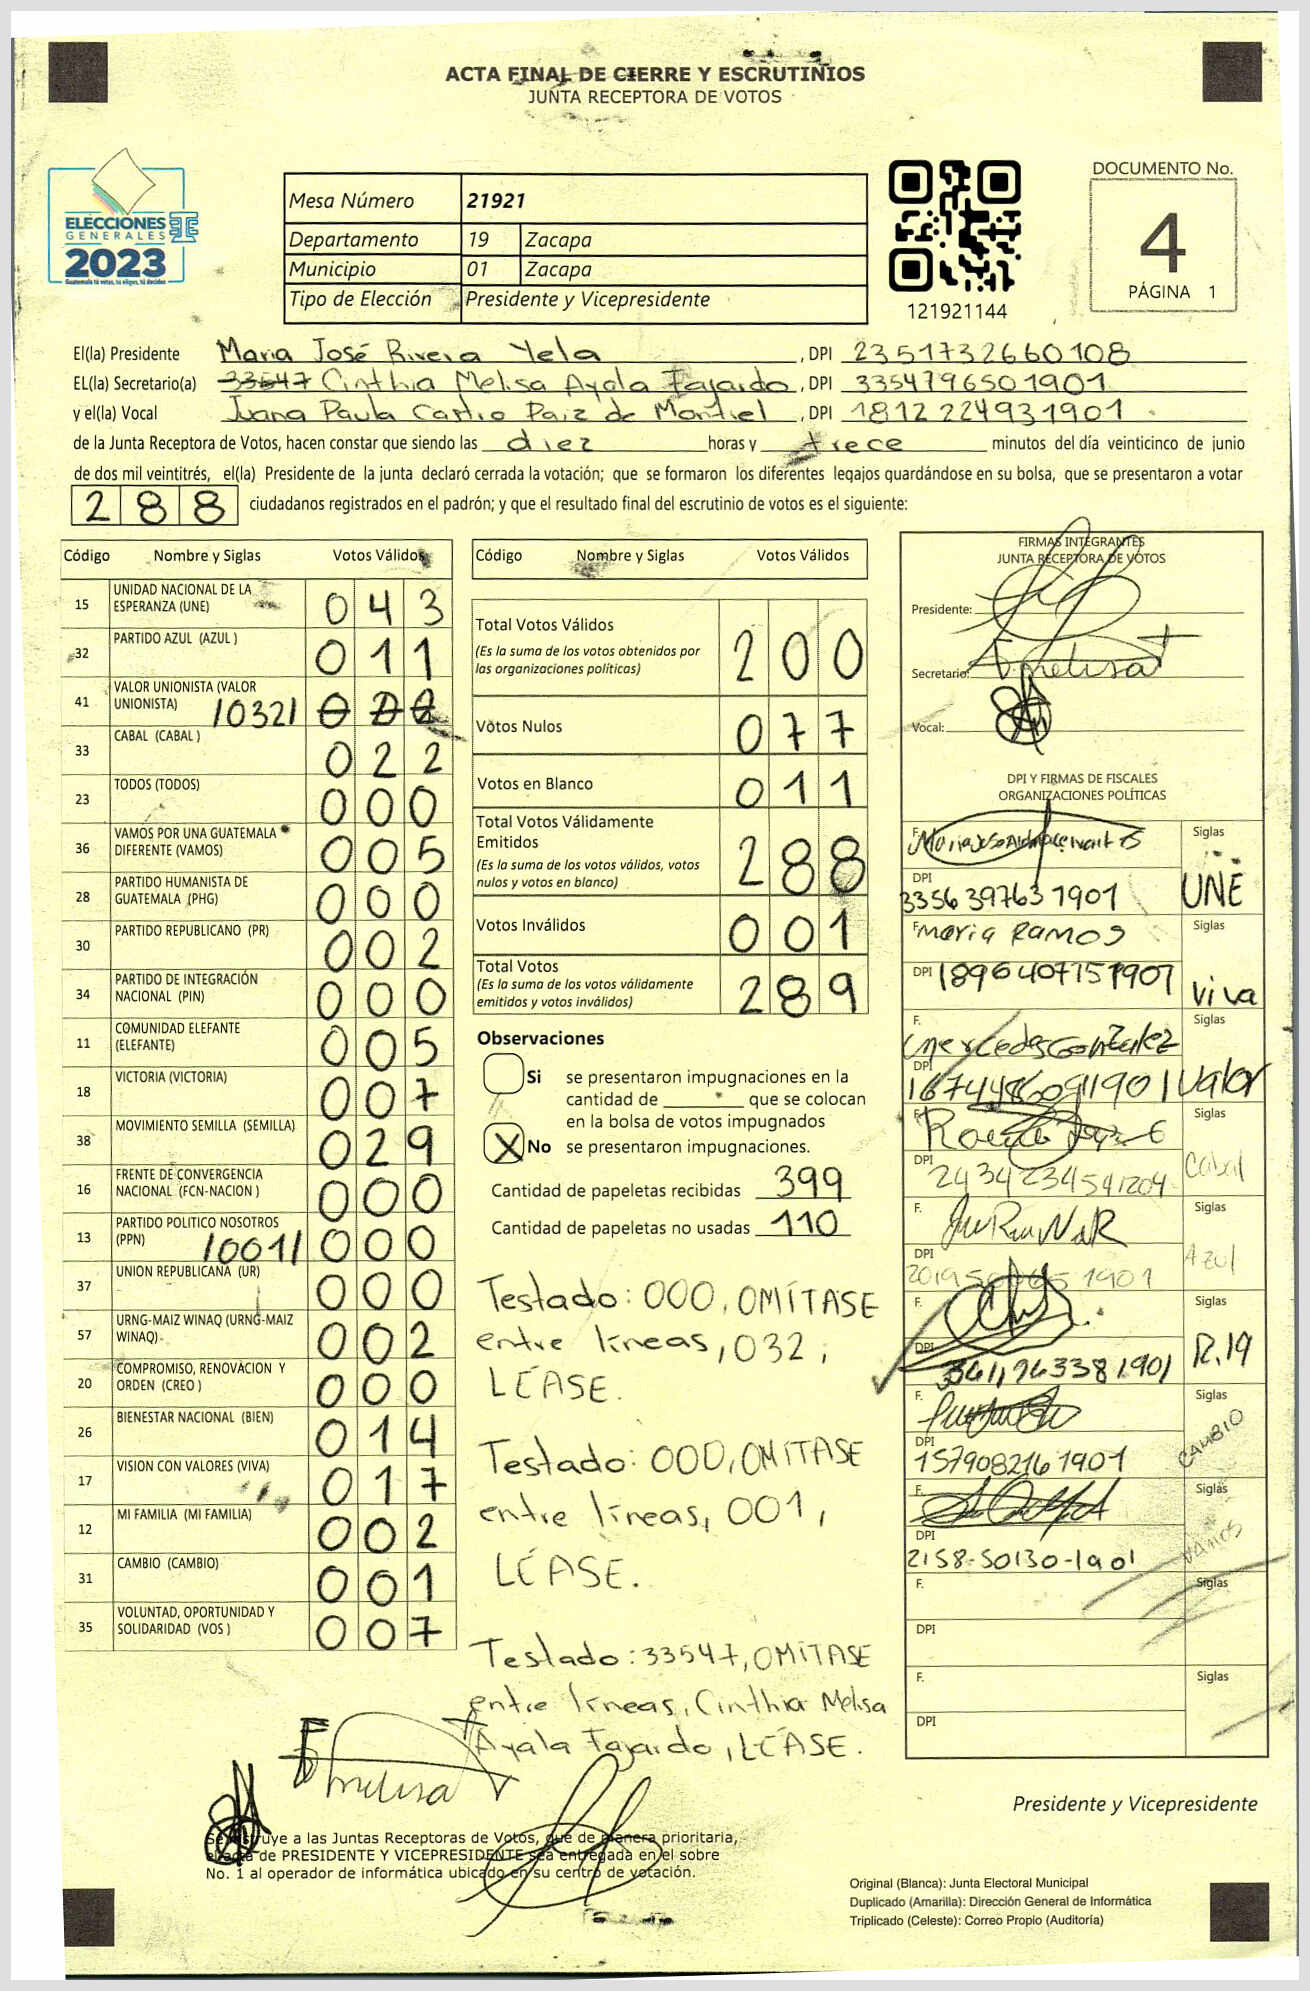 ACTA FINAL DE CIERRE Y ESCRUTINIOS
JUNTA RECEPTORA DE VOTOS
ELECCIONES
GENERALES
2023
Guatemala tú votas, tú eliges, tú decides
Mesa Número 21921
Departamento 19 Zacapa
Municipio 01 Zacapa
Tipo de Elección Presidente y Vicepresidente
121921144
DOCUMENTO No.
4
PÁGINA 1
El(la) Presidente Maria José Rivera Yela , DPI 2351732660108
EL(la) Secretario(a) 33547 Cinthia Melisa Ayala Fajardo , DPI 3354796501901
y el(la) Vocal Juana Paula Castro Paiz de Montiel , DPI 1812224931901
de la Junta Receptora de Votos, hacen constar que siendo las diez horas y trece minutos del día veinticinco de junio
de dos mil veintitrés, el(la) Presidente de la junta declaró cerrada la votación; que se formaron los diferentes legajos guardándose en su bolsa, que se presentaron a votar
288 ciudadanos registrados en el padrón; y que el resultado final del escrutinio de votos es el siguiente:
Código Nombre y Siglas Votos Válidos
15 UNIDAD NACIONAL DE LA ESPERANZA (UNE) 043
32 PARTIDO AZUL (AZUL ) 011
41 VALOR UNIONISTA (VALOR UNIONISTA)
33 CABAL (CABAL ) 022
23 TODOS (TODOS) 000
36 VAMOS POR UNA GUATEMALA DIFERENTE (VAMOS) 005
28 PARTIDO HUMANISTA DE GUATEMALA (PHG) 000
30 PARTIDO REPUBLICANO (PR) 002
34 PARTIDO DE INTEGRACIÓN NACIONAL (PIN) 000
11 COMUNIDAD ELEFANTE (ELEFANTE) 005
18 VICTORIA (VICTORIA) 007
38 MOVIMIENTO SEMILLA (SEMILLA) 029
16 FRENTE DE CONVERGENCIA NACIONAL (FCN-NACION ) 000
13 PARTIDO POLITICO NOSOTROS (PPN) /001/ 000
37 UNION REPUBLICANA (UR) 000
57 URNG-MAIZ WINAQ (URNG-MAIZ WINAQ) 002
20 COMPROMISO, RENOVACION Y ORDEN (CREO ) 000
26 BIENESTAR NACIONAL (BIEN) 014
17 VISION CON VALORES (VIVA) 017
12 MI FAMILIA (MI FAMILIA) 002
31 CAMBIO (CAMBIO) 001
35 VOLUNTAD, OPORTUNIDAD Y SOLIDARIDAD (VOS ) 007
Código Nombre y Siglas Votos Válidos
Total Votos Válidos 200
(Es la suma de los votos obtenidos por
las organizaciones políticas)
Votos Nulos 077
Votos en Blanco 011
Total Votos Válidamente
Emitidos 288
(Es la suma de los votos válidos, votos
nulos y votos en blanco)
Votos Inválidos 001
Total Votos 289
(Es la suma de los votos válidamente
emitidos y votos inválidos)
Observaciones
Si se presentaron impugnaciones en la
cantidad de ________ que se colocan
en la bolsa de votos impugnados
X No se presentaron impugnaciones.
Cantidad de papeletas recibidas 399
Cantidad de papeletas no usadas 110
Testado: 000, OMÍTASE
entre líneas, 032,
LÉASE.
Testado: 000, OMÍTASE
entre líneas, 001,
LÉASE.
Testado: 33547, OMÍTASE
entre líneas, Cinthia Melisa
Ayala Fajardo, LÉASE.
FIRMAS INTEGRANTES
JUNTA RECEPTORA DE VOTOS
Presidente:
Secretario:
Vocal:
DPI Y FIRMAS DE FISCALES
ORGANIZACIONES POLÍTICAS
F. Siglas
DPI 3356397631901 UNE
F. Maria Ramos Siglas
DPI 1896407151901 Viva
F. Mercedes González Siglas
DPI Valor
F. Siglas
DPI Cabal
F. Siglas
DPI Azul
F. Siglas
DPI R.19
F.
DPI 1579082161901 CAMBIO
F. Siglas
DPI 2158-50130-1901 VAMOS
F. Siglas
DPI
F. Siglas
DPI
Presidente y Vicepresidente
Se instruye a las Juntas Receptoras de Votos, que de manera prioritaria,
el acta de PRESIDENTE Y VICEPRESIDENTE sea entregada en el sobre
No. 1 al operador de informática ubicado en su centro de votación.
Original (Blanca): Junta Electoral Municipal
Duplicado (Amarilla): Dirección General de Informática
Triplicado (Celeste): Correo Propio (Auditoría)